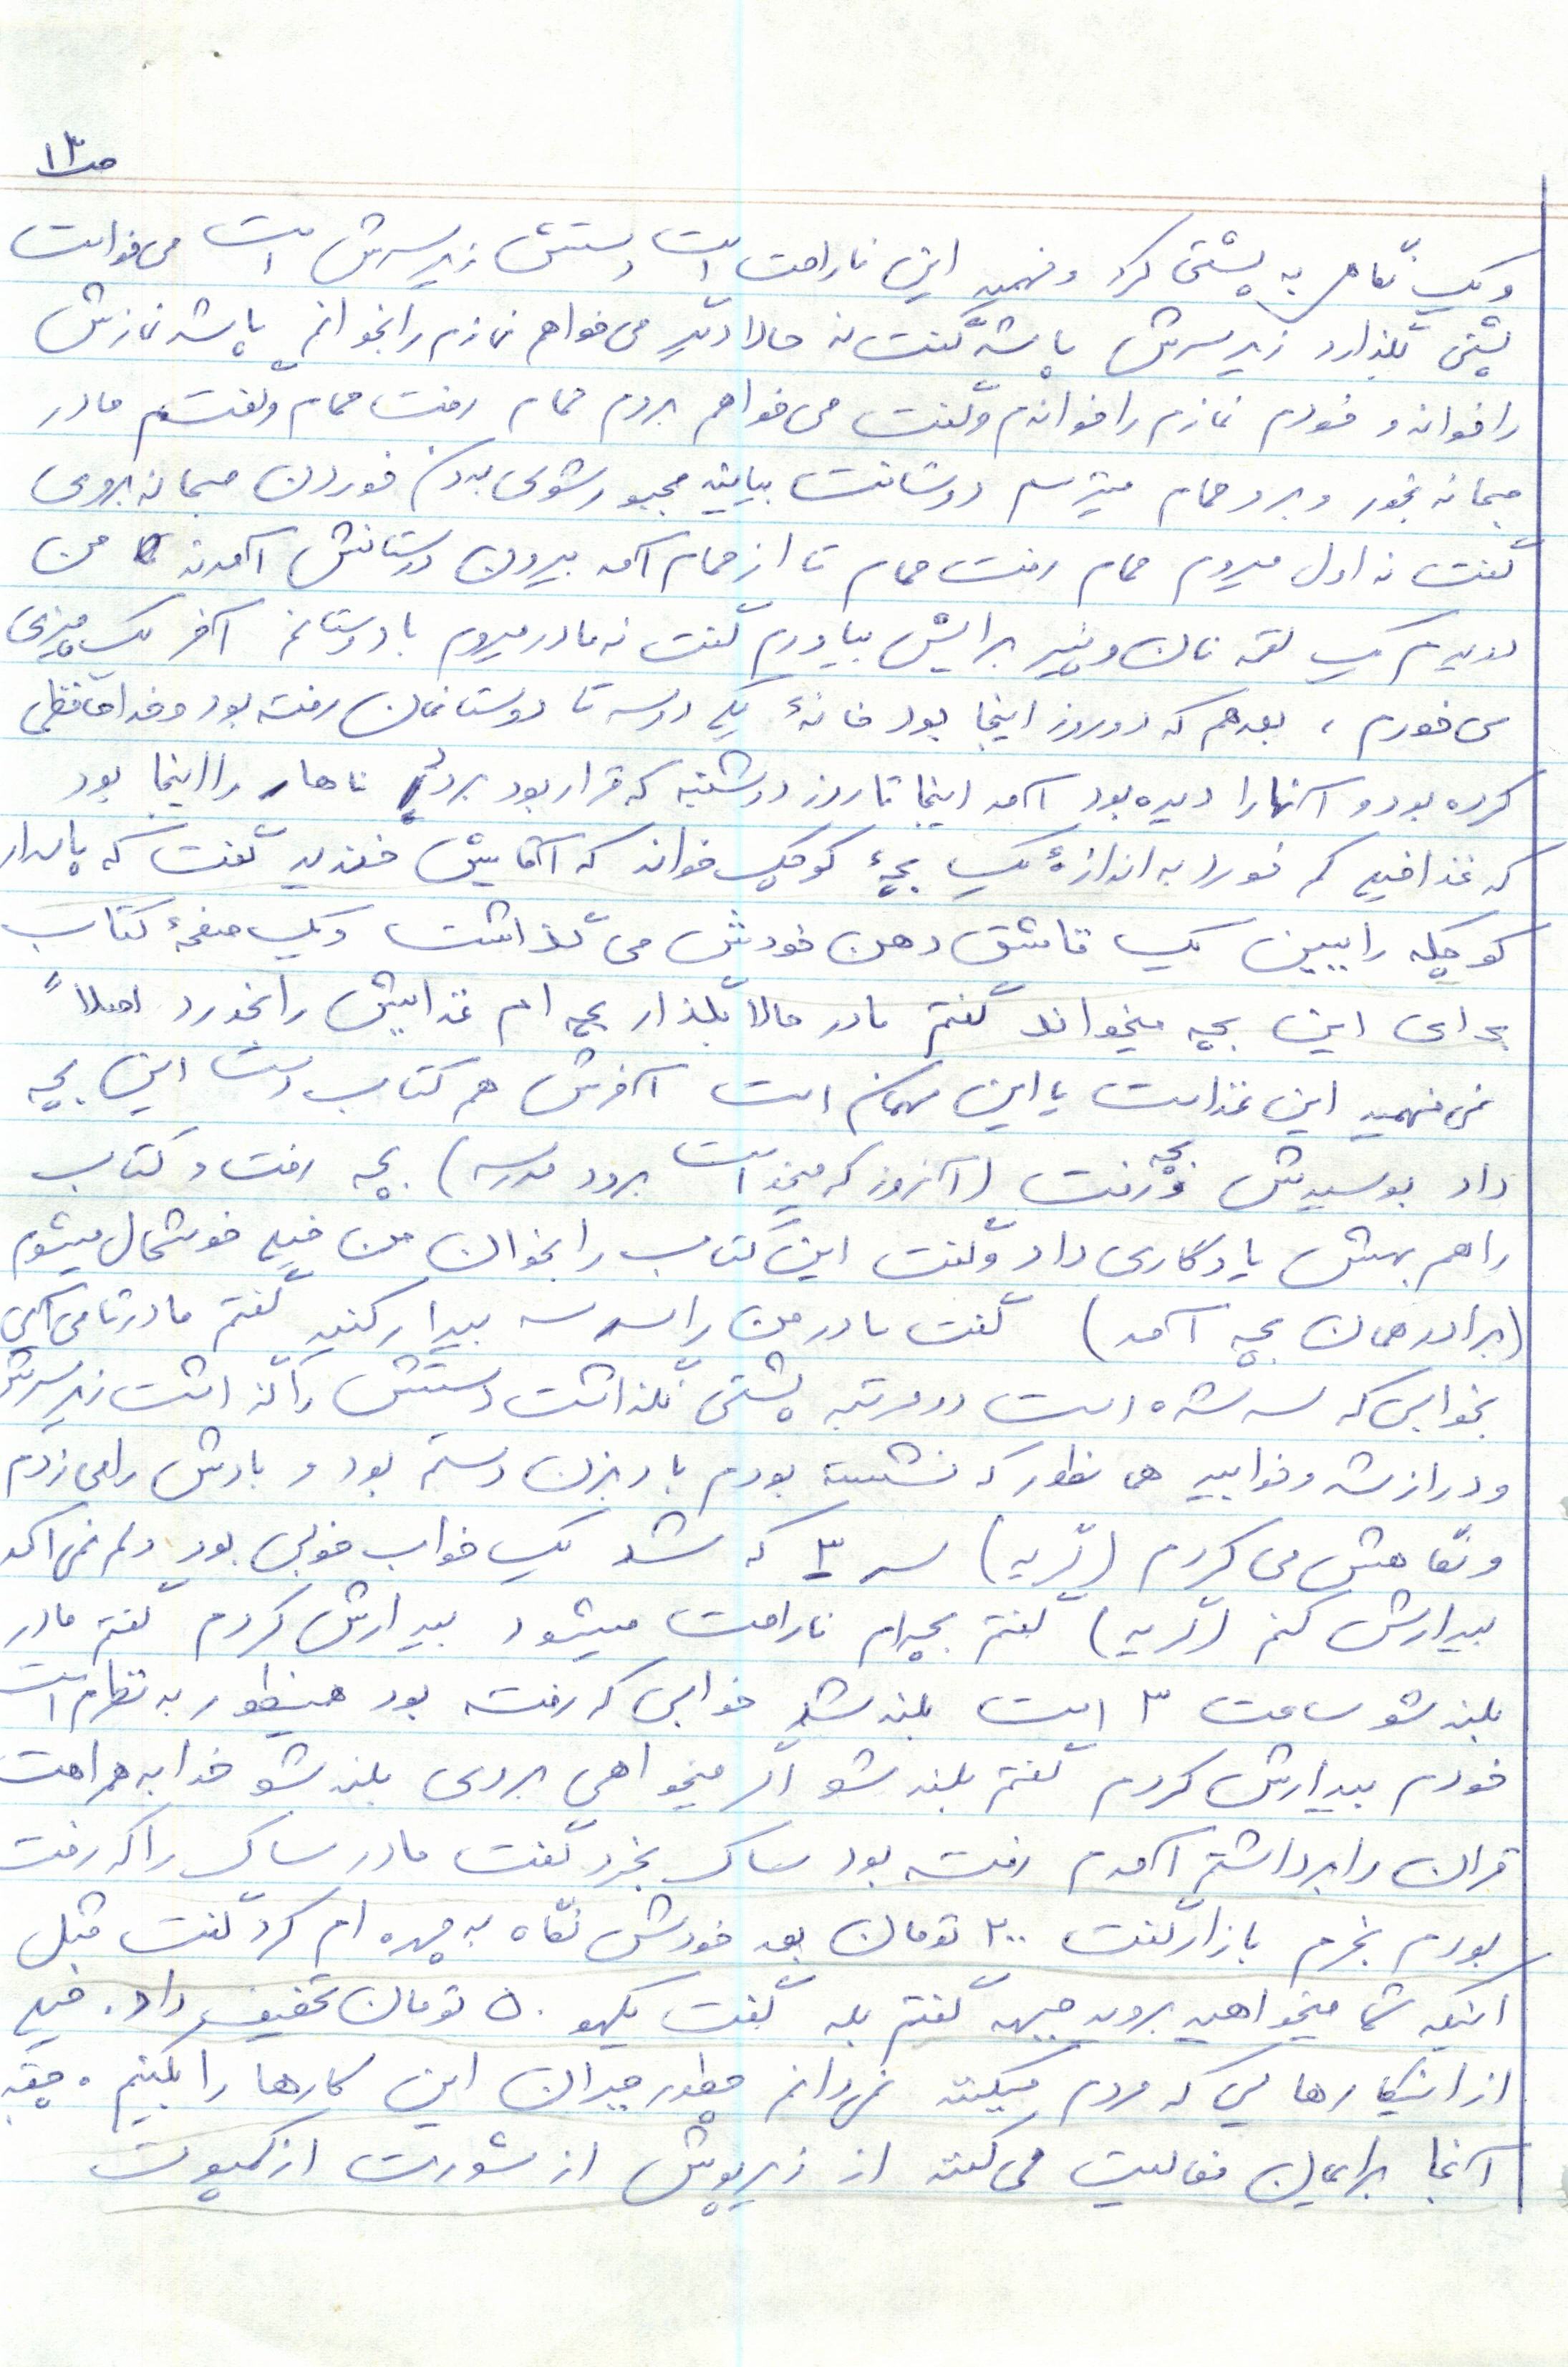 ص۱۳
و یک نگاهی به پشتی کرد و فهمید این ناراحت است دستش زیر سرش است می‌خواست
پشتی بگذارد زیر سرش پا شد گفت نه حالا دیگر می‌خواهم نمازم را بخوانم پا شد نمازش
را خواند و خودم نمازم را خواندم و گفت می‌خواهم بروم حمام رفت حمام و گفتم مادر
صبحانه بخور و برو حمام میترسم دوستانت بیایند مجبور شوی بدون خوردن صبحانه بروی
گفت نه اول میروم حمام رفت حمام تا از حمام آمد بیرون دوستانش آمدند من
دویدم یک لقمه نان و پنیر برایش بیاورم گفت نه مادر میروم با دوستانم آخر یک چیزی
می‌خورم ، بعد هم که دو روز اینجا بود خانهٔ یکی دو سه تا دوستانمان رفته بود و خداحافظی
کرده بود و آنها را دیده بود آمد اینجا تا روز دوشنبه که قرار بود برود ناهار را اینجا بود
که غذا خیلی کم خورد به اندازهٔ یک بچهٔ کوچک خواند که آقایش خندید گفت که پاسدار
کوچکه را ببین یک قاشق دهن خودش می‌گذاشت و یک صفحهٔ کتاب
برای این بچه میخواند گفتم مادر حالا بگذار بچه ام غذایش را بخورد اصلاً
نمی‌فهمید این غذاست یا این مهمان است آخرش هم کتاب دست این بچه
داد بوسیدش بچه رفت (آنروز که میخواست برود مدرسه) بچه رفت و کتاب
را هم بهش یادگاری داد و گفت این کتاب را بخوان من خیلی خوشحال میشوم
(برادر همان بچه آمد) گفت مادر من را سر سه بیدار کنید گفتم مادر تا می‌آئی
بخوابی که سه شده است دو مرتبه پشتی نگذاشت دستش را گذاشت زیر سرش
و دراز شد و خوابید همانطور که نشسته بودم بادبزن دستم بود و بادش را می‌زدم
و نگاهش می‌کردم (گریه) سر ۳ که شد یک خواب خوبی بود دلم نمی‌آمد
بیدارش کنم (گریه) گفتم بچه‌ام ناراحت میشود بیدارش کردم گفتم مادر
بلند شو ساعت ۳ است بلند شد خوابی که رفته بود همینطور به نظرم است
خودم بیدارش کردم گفتم بلند شو اگر میخواهی بروی بلند شو خدا به همراهت
قران را برداشتم آمدم رفته بود ساک بخرد گفت مادر ساک را که رفت
بودم بخرم بازار گفت ۲۰۰ تومان بعد خودش نگاه به چهره ام کرد گفت مثل
اینکه شما میخواهید بروید جبهه گفتم بله گفت یکهو ۵۰ تومان تخفیف داد. خیلی
از اینکارهایی که مردم میکنند نمی‌دانم چطور جبران این کارها را بکنیم . چقد
آنجا برایمان فعالیت می‌کنند از زیرپوش از شورت از کمپوت